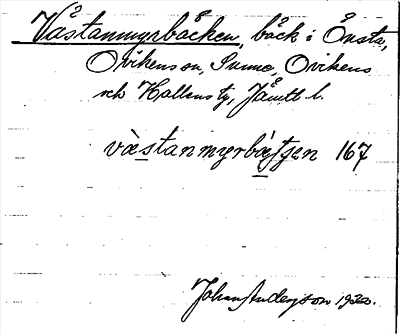 Västanmyrbäcken, bäck i Önsta,
Ovikens sn, Sunne, Ovikens
och Hallens tg, Jämtl. l.
västanmyrbäʃtʃen 167
Johan Anderson 1920.